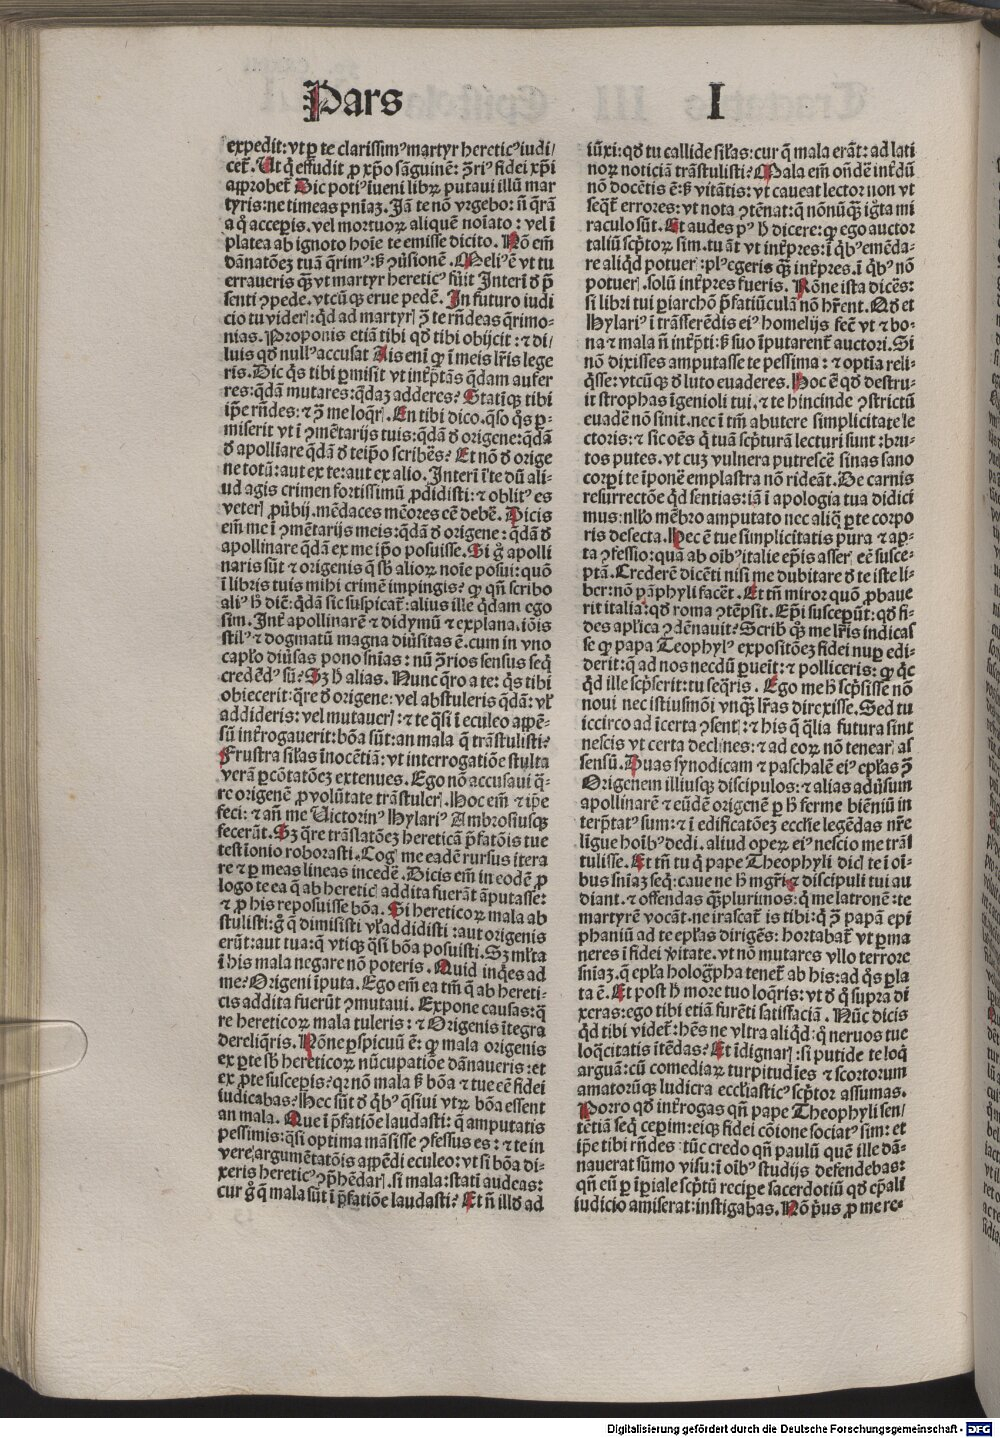 Pars
I
expedit: vt ꝑ te clarissimꝰ martyr hereticꝰ iudi/
cet᷑. Ut q̇ effudit ꝓ xp̄o sāguinē: ↄ̄riꝰ fidei xp̄i
aꝓrobet᷑ Dic potiꝰ iueni libꝝ putaui illū mar
tyris: ne timeas pniaꝫ. Jā te nō vrgebo: n̄ q̄rā
a q̊ acceperis. vel mortuoꝝ aliquē noīato: vel ī
platea ab ignoto hoīe te emisse dicito. Nō em̄
dānatōeꝫ tuā q̄rimꝰ: sꝫ ↄuersionē. Meliꝰ ē vt tu
erraueris qꝫ vt martyr hereticꝰ fuerit Interī d̓ p̄
senti ↄpede. vtcūqꝫ erue pedē. In futuro iudi
cio tu vider᷑: qd̓ ad martyr᷑ ↄ̄ te rn̄deas q̄rimo-
nias. Proponis etiā tibi qd̓ tibi obijcit: ⁊ di/
luis qd̓ nullꝰ accusat Ais eni ꝙ ī meis lr̄is lege
ris. Dic q̊s tibi ꝑmisit vt intꝑtās q̄dam aufer
res: q̄dā mutares: q̄daꝫ adderes? Statīqꝫ tibi
ip̄e rn̄des: ⁊ ↄ̄ me loq̄r᷑. En tibi dico. q̄so q̊s ꝑ-
miserit vt ī ↄmētarijs tuis: q̄dā d̓ origene: q̄dā
d̓ apolliare q̄dā d̓ teip̄o scriberes? Et nō d̓ orige
ne totū: aut ex te: aut ex alio. Interī ī te dū ali-
ud agis crimen fortissimū ꝓdidisti: ⁊ oblitꝰ es
veter᷑ ꝓuerbij. mēdaces mēores eē debere. Dicis
em̄ me ī ↄmētarijs meis: q̄dā d̓ origene: q̄dā d̓
apollinare q̄dā ex me ip̄o posuisse. Si g̊ apolli
naris sūt ⁊ origenis q̄ sꝫ alioꝝ noīe posui: quō
ī libris tuis mihi crimē impingis? ꝙ qn̄ scribo
aliꝰ h̄ dic̄: q̄dā sic suspicat᷑: alius ille q̄dam ego
sim. Int᷑ apollinarē ⁊ didymū ⁊ explana.iōis
stilꝰ ⁊ dogmatū magna diuersitas ē. cum in vno
caplo diuersas pono sn̄ias: nū ↄ̄rios sensus seq̇
credēdꝰ sū? Sꝫ h̄ alias. Nunc q̄ro a te: q̊s tibi
obiecerit: q̄re d̓ origene: vel abstuleris q̄dā: vel
addideris: vel mutauer᷑: ⁊ te q̄si ī eculeo aꝓpē-
sū int᷑rogauerit: bōa sūt: an mala q̄ trāstulisti?
Frustra silas īnocētiā: vt interrogatiōe stulta
verā ꝑcōtatōeꝫ extenues. Ego nō accusaui q̄-
re origenē ꝓ volūtate trāstuler᷑. Hoc em̄ ⁊ ip̄e
feci: ⁊ an̄ me Uictorinꝰ Hylariꝰ Ambrosiusqꝫ
fecerāt. Sꝫ q̄re trāslatōeꝫ hereticā p̄fatōis tue
testīonio roborasti. Cog᷑ me eadē rursus itera
re ⁊ ꝑ meas lineas incedere. Dicis em̄ in eodē ꝓ
logo te ea q̄ ab heretic᷑ addita fuerāt āputasse:
⁊ ꝓ his reposuisse bōa. Si hereticoꝝ mala ab
stulisti: g̊ q̄ dimisisti vel addidisti: aut origenis
erūt: aut tua: q̄ vtiqꝫ q̄si bōa posuisti. Sꝫ mlta
ī his mala negare nō poteris. Quid inq̇es ad
me? Origeni īputa. Ego em̄ ea tm̄ q̄ ab hereti-
cis addita fuerūt ↄmutaui. Expone causas: q̄
re hereticoꝝ mala tuleris: ⁊ Origenis ītegra
dereliq̇ris. Nōne ꝑspicuū ē: ꝙ mala origenis
ex ꝑte sb̄ hereticoꝝ nūcupatiōe dānaueris: et
ex ꝑte susceperis? qꝛ nō mala sꝫ bōa ⁊ tue eē fidei
iudicabas? Hec sūt d̓ q̇bꝰ q̄siui vtꝝ bōa essent
an mala. Que ī p̄fatiōe laudasti: q̄ amputatis
pessimis: q̄si optima māsisse ↄfessus es: ⁊ te in
vere argumētatōis aꝓpēdi eculeo: vt si bōa di-
xeris hereticꝰ ↄp̄hēdar᷑. si mala: statī audeas:
cur g̊ q̄ mala sūt ī p̄fatiōe laudasti? Et n̄ illd̓ ad
iūxi: qd̓ tu callide silas: cur q̄ mala erāt: ad lati
noꝝ noticiā trāstulisti? Mala em̄ on̄dere int᷑dū
nō docētis ē: sꝫ vitātis: vt caueat lector non vt
seq̄t᷑ errores: vt nota ↄtēnat: q̄ nōnūqꝫ ig̊ta mi
raculo sūt. Et audes pꝰ h̄ dicere: ꝙ ego auctor
taliū scp̄toꝝ sim. tu āt vt int᷑pres: ī q̇bꝰ emēda-
re aliqd̓ potuer᷑: plꝰ egeris qꝫ int᷑pres. ī q̇bꝰ nō
potuer᷑. solū int᷑pres fueris. Rōne ista diceres:
si libri tui periarchō p̄fatiūculā nō hr̄ent. Qd̓ et
Hylariꝰ ī trāsferēdis eiꝰ homelijs fecit vt ⁊ bo-
na ⁊ mala n̄ int᷑pti: sꝫ suo īputarent᷑ auctori. Si
nō dixisses amputasse te pessima: ⁊ optīa reli-
q̇sse: vtcūqꝫ d̓ luto euaderes. Hoc ē qd̓ destru-
it strophas īgenioli tui. ⁊ te hincinde ↄstrictū
euadere nō sinit. nec ī tm̄ abutere simplicitate le
ctoris: ⁊ sic oēs q̇ tuā scp̄turā lecturi sunt: bru-
tos putes. vt cuꝫ vulnera putrescere sinas sano
corꝑi te īponere emplastra nō rideāt. De carnis
resurrectōe qd̓ sentias: iā ī apologia tua didici
mus: nllo mēbro amputato nec aliq̄ ꝑte corpo
ris desecta. Hec ē tue simplicitatis pura ⁊ aꝑ-
ta ↄfessio: quā ab oībꝰ italie ep̄is asser᷑ eē susce-
ptā. Crederem dicēti nisi me dubitare d̓ te iste li-
ber: nō pāphyli faceret. Et tn̄ miror quō ꝓbaue
rit italia: qd̓ roma ↄtēpsit. Ep̄i susceperūt: qd̓ fi-
des aplica ↄdēnauit? Scribꝰ qꝫ me lr̄is indicas
se ꝙ papa Teophylꝰ expositōeꝫ fidei nuꝑ edi-
derit: q̄ ad nos necdū ꝑueit: ⁊ polliceris: ꝙ q̇c
qd̓ ille scp̄serit: tu seq̄ris. Ego me h̄ scp̄sisse nō
noui nec istiusmōi vnqꝫ lr̄as direxisse. Sed tu
iccirco ad īcerta ↄsent᷑: ⁊ his q̄ q̄lia futura sint
nescis vt certa declines: ⁊ ad eoꝝ nō tenear᷑ as
sensū. Duas synodicam ⁊ paschalē eiꝰ epl̄as ↄ̄
Origenem illiusqꝫ discipulos: ⁊ alias aduersum
apollinarē ⁊ eūdē origenē ꝑ h̄ ferme bienīū in
terp̄tatꝰ sum: ⁊ ī edificatōeꝫ ecclie legēdas nr̄e
ligue hoībꝰ dedi. aliud opeꝝ eiꝰ nescio me trās
tulisse. Et tn̄ tu q̇ pape Theophyli dic᷑ te ī oī-
bus sn̄iaꝫ seq̇: caue ne h̄ mgr̄i ⁊ discipuli tui au
diant. ⁊ offendas qꝫplurimos: q̇ me latronē: te
martyrē vocāt. ne irascat᷑ is tibi: q̇ ↄ̄ papā epi
phaniū ad te epl̄as dirigēs: hortabat᷑ vt ꝑma
neres ī fidei veritate. vt nō mutares vllo terrore
sn̄iaꝫ. q̄ epl̄a holog̊pha tenet᷑ ab his: ad q̊s perla
ta ē. Et post h̄ more tuo loq̄ris: vt d̓ q̊ supra di
xeras: ego tibi etiā furēti satisfaciā. Nūc dicis
qd̓ tibi videt᷑: hēs ne vltra aliqd̓: q̊ neruos tue
loq̄citatis ītēdas? Et īdignar᷑: si putide te loq̇
arguā: cū comediaꝝ turpitudines ⁊ scortorum
amatorūqꝫ ludicra eccl̄iasticꝰ scp̄tor assumas.
Porro qd̓ int᷑rogas qn̄ pape Theophyli sen/
tētiā seq̇ ceperim: eiqꝫ fidei cōione sociatꝰ sim: et
ip̄e tibi rn̄des: tūc credo qn̄ paulū quē ille dā-
nauerat sūmo visu: ī oībꝰ studijs defendebas:
qn̄ eū ꝑ īperiale scp̄tū recipere sacerdotiū qd̓ ep̄ali
iudicio amiserat: instigabas. Nō priꝰ ꝓ me re-
Digitalisierung gefördert durch die Deutsche Forschungsgemeinschaft - DFG